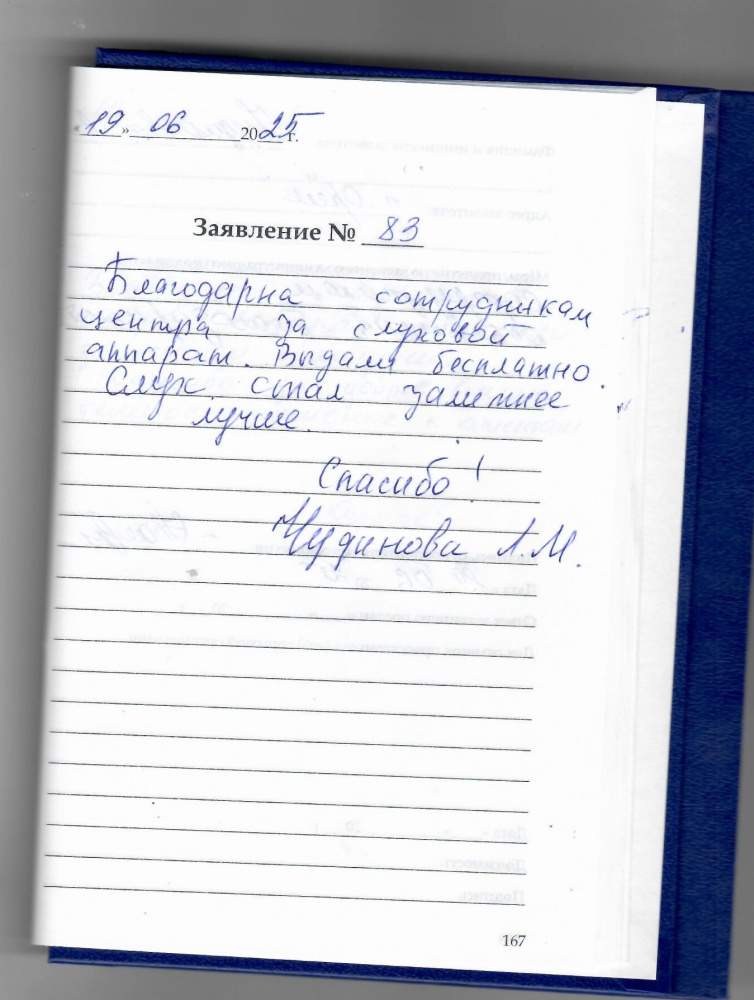 19 » 06 2025 г.
Заявление № 83
Благодарна сотрудникам
центра за слуховой
аппарат. Выдали бесплатно.
Слух стал заметнее
лучше.
Спасибо!
Чудинова Л.М.
167